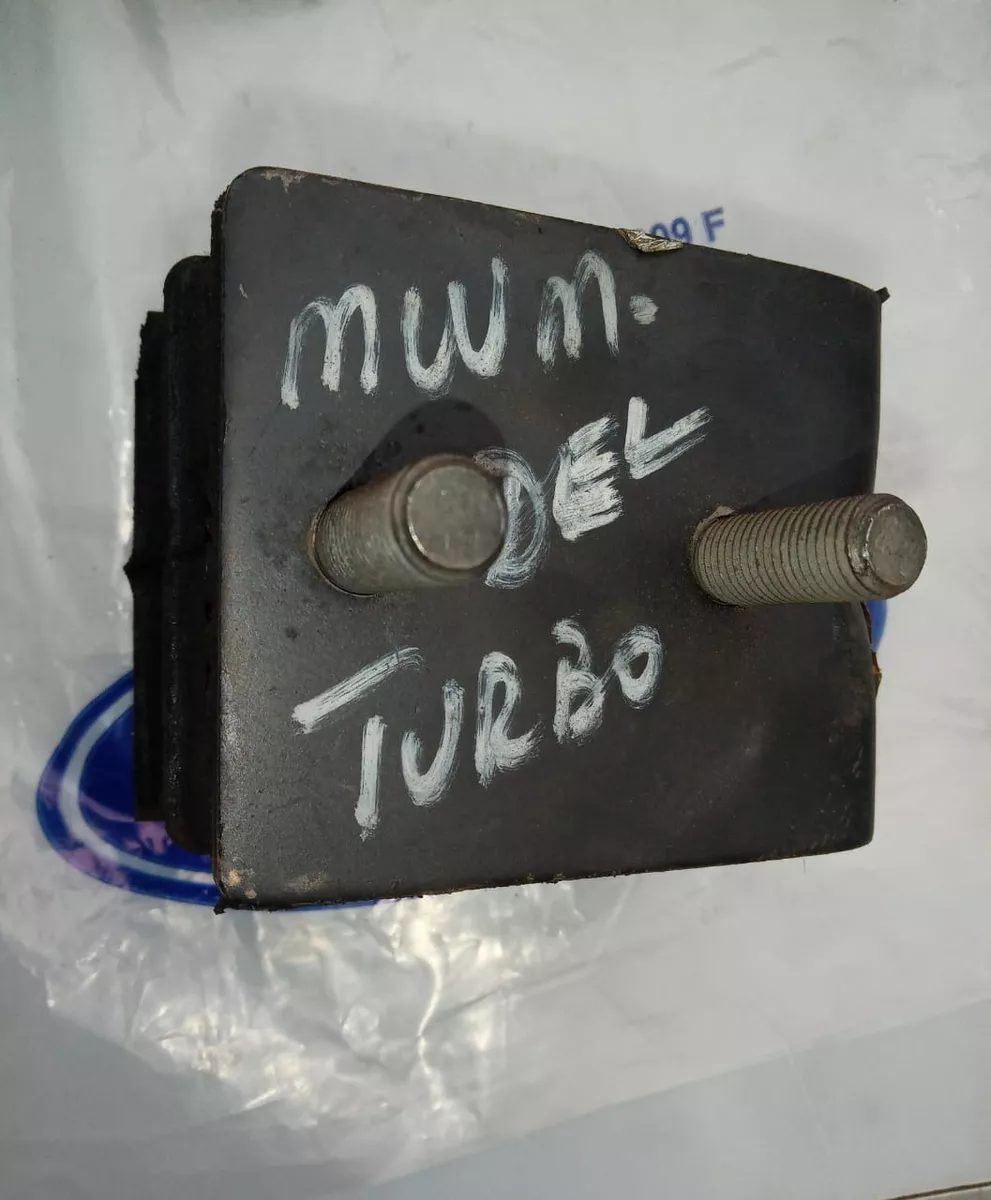 09 F
MWM.
DEL
TURBO